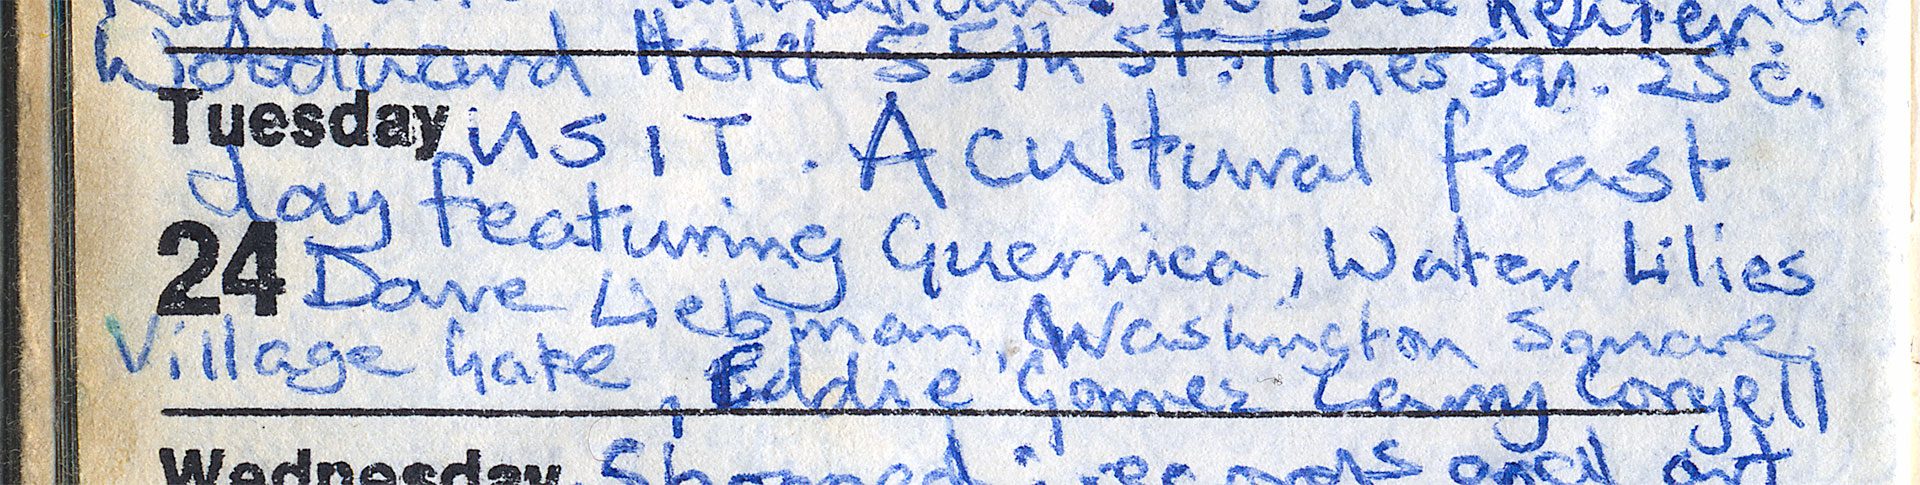 Woodward Hotel 55th St. Times Sqr. 25c.
Tuesday USIT. A cultural feast
day featuring Guernica, Water Lilies
24 Dave Liebman, Washington Square,
Village Gate, Eddie Gomez Larry Coryell
Wednesday Shopped: records and art